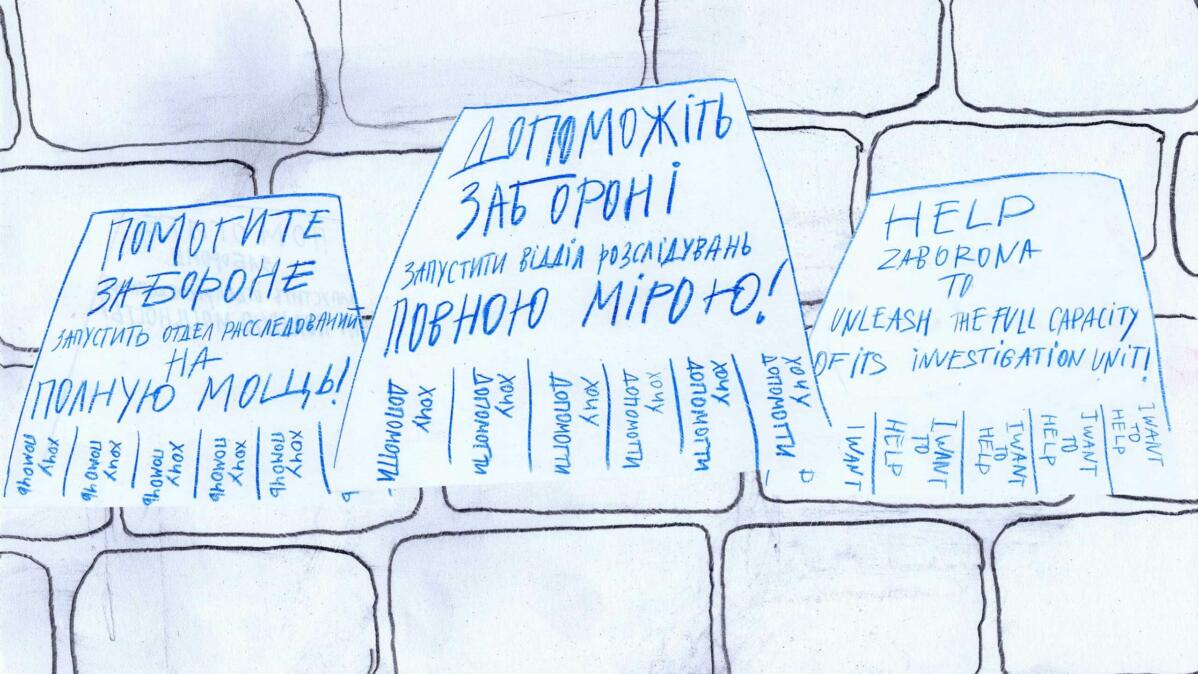 ПОМОГИТЕ
ЗАБОРОНЕ
ЗАПУСТИТЬ ОТДЕЛ РАССЛЕДОВАНИЙ
НА
ПОЛНУЮ МОЩЬ!
ХОЧУ ПОМОЧЬ
ХОЧУ ПОМОЧЬ
ХОЧУ ПОМОЧЬ
ХОЧУ ПОМОЧЬ
ХОЧУ ПОМОЧЬ
ДОПОМОЖІТЬ
ЗАБОРОНІ
ЗАПУСТИТИ ВІДДІЛ РОЗСЛІДУВАНЬ
ПОВНОЮ МІРОЮ!
ХОЧУ
ХОЧУ ДОПОМОГТИ
ХОЧУ ДОПОМОГТИ
ХОЧУ ДОПОМОГТИ
ХОЧУ ДОПОМОГТИ
ХОЧУ ДОПОМОГТИ
HELP
ZABORONA
TO
UNLEASH THE FULL CAPACITY
OF ITS INVESTIGATION UNIT!
I WANT
I WANT TO HELP
I WANT TO HELP
I WANT TO HELP
I WANT TO HELP